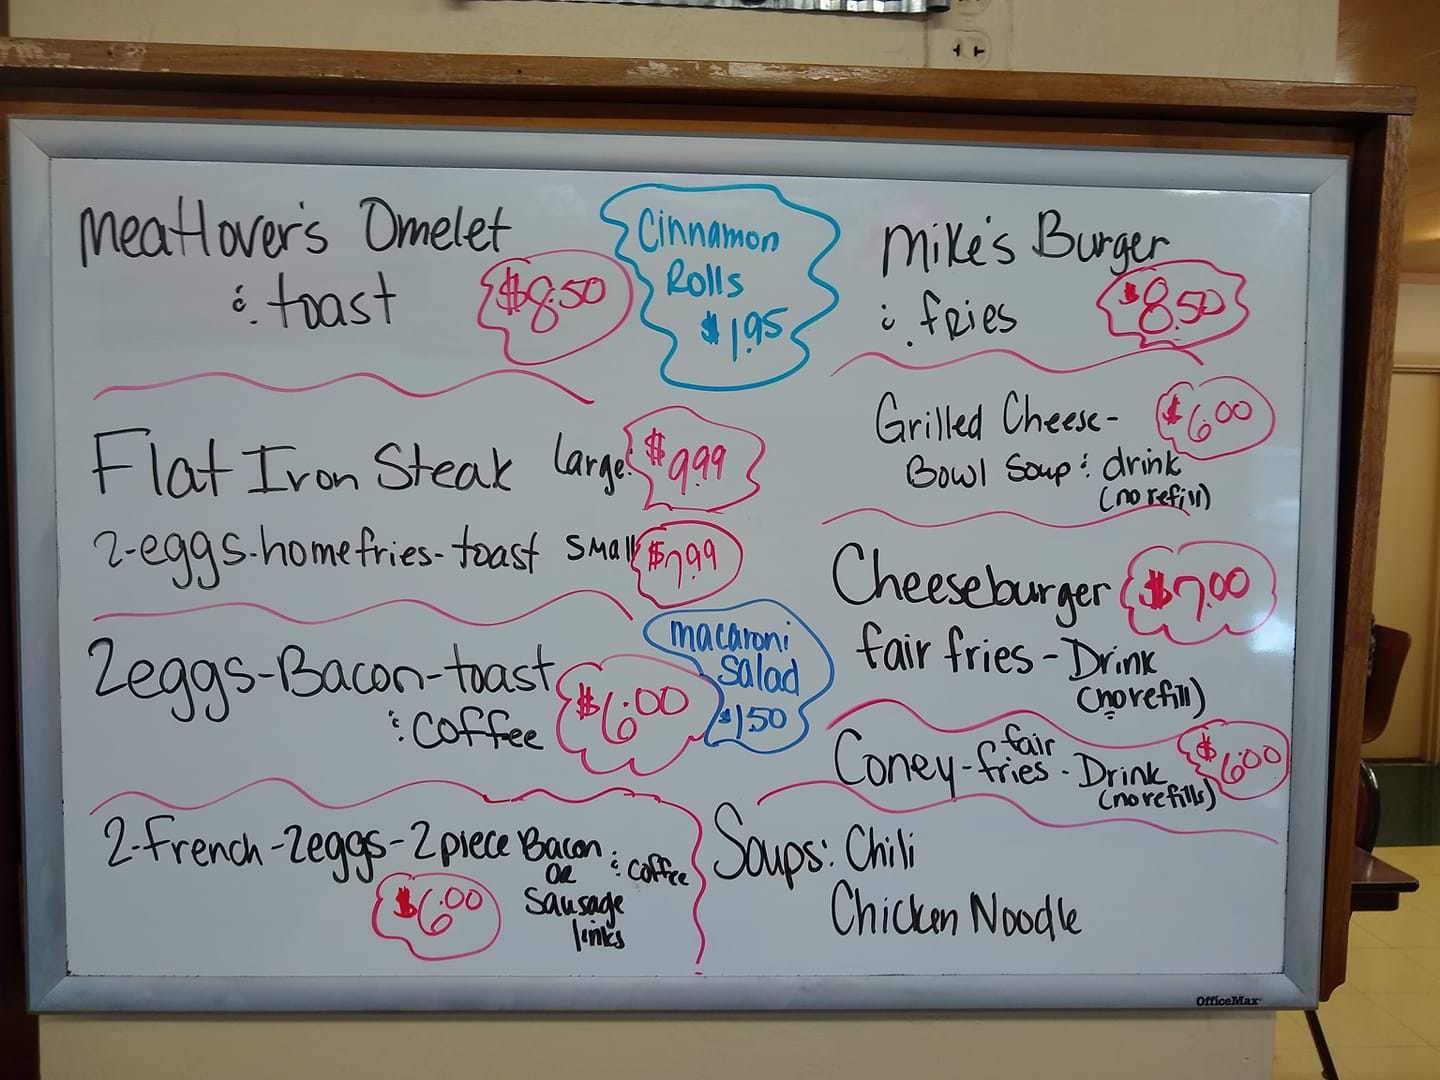 Meatlover's Omelet
& toast $8.50
Cinnamon
Rolls
$1.95
Flat Iron Steak Large: $9.99
2-eggs-homefries-toast Small $7.99
2eggs-Bacon-toast
& coffee $6.00
macaroni
Salad
$1.50
2-French-2eggs-2piece Bacon & coffee
or
Sausage
links
$6.00
Mike's Burger
& fries $8.50
Grilled Cheese- $6.00
Bowl Soup & drink
(no refill)
Cheeseburger $7.00
fair fries - Drink
(no refill)
Coney-fair fries - Drink $6.00
(no refills)
Soups: Chili
Chicken Noodle
OfficeMax